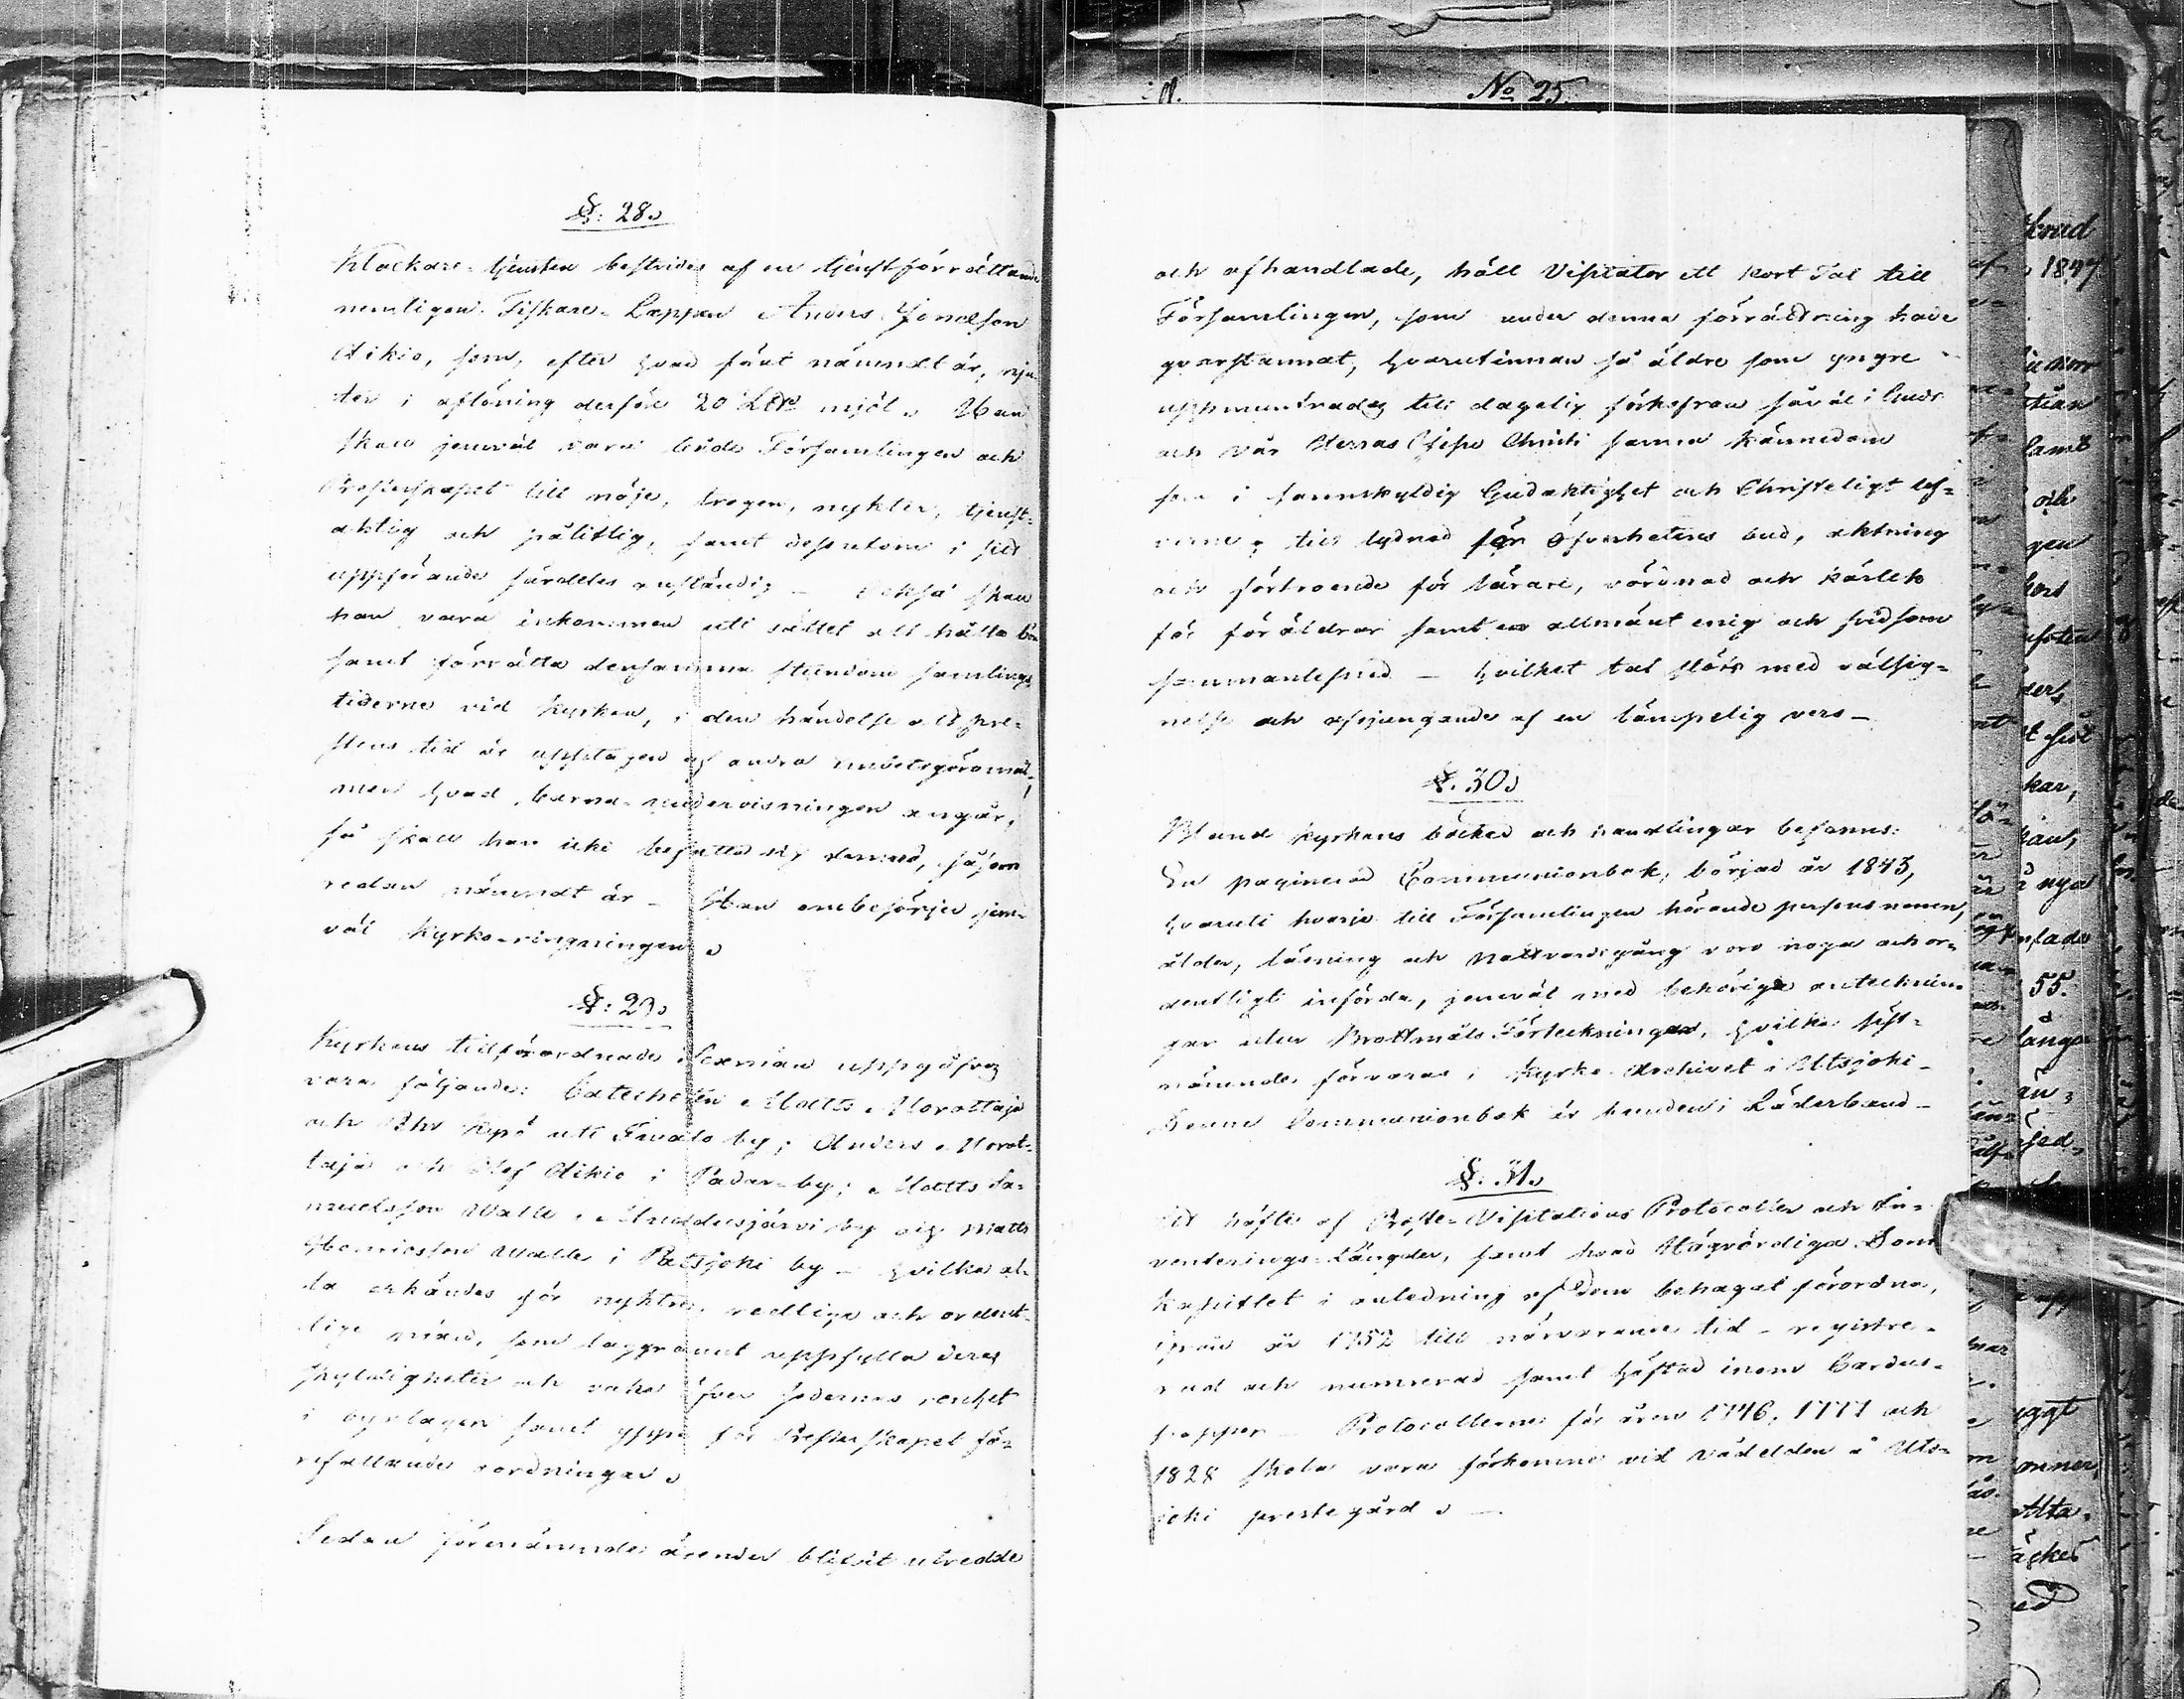 No 25.
§. 28.
Klockare-tjensten bestrides af en tjenstförrättande
nemligen Fiskare-Lappen Anders Jonasson
Aikio, som, efter hvad förut nämndt är, nju-
ter i aflöning derföre 20 mjöl. Han
skall jemväl vara både Församlingen och
Presterskapet till nöje, trogen, nykter, tjenst-
aktig och pålitlig, samt dessutom i sitt
uppförande särdeles anständig – också skall
han vara inkommen uti sättet att hålla bön
samt förrätta densamma stundom samlings
tiderne vid kyrkan, i den händelse att pre-
stens tid är upptagen af andra embetsgöromål,
men hvad barna-undervisningen angår,
så skall han icke befatta sig dermed, såsom
redan nämndt är – Han ombesörjer jem-
väl kyrko-ringningen.
§. 29.
Kyrkans tillförordnade Sexmän uppgåfvos
vara följande: Catecheten Matts Morottaja
och Kyrö uti Ivalo by; Anders Morot-
taja och Olof Aikio i Padar-by; Matts Sa-
muelsson Walle i Muddusjärvi by och Matts
Henricsson Walle i Patsjoki by – hvilka al-
la erkändes för nyktra, redliga och ordent-
liga män, som laggrannt uppfylla deras
skyldigheter och vaka öfver sedernas renhet
i byalagen samt yppa för Presterskapet fö-
refallande oordningar.
Sedan förenämnde ärender blifvit utredde
och afhandlade, höll Visitator ett kort Tal till
Församlingen, som under denna förrättning hade
qvarstannat, hvarutinnan så äldre som yngre
uppmuntrades till dagelig förkofran såväl i Guds
och vår Herras Jesu Christi sanna kännedom
som i sannskyldig Gudaktighet och Christeligt lef-
verne, till lydnad för Öfverhetens bud, aktning
och förtroende för lärare, vördnad och kärlek
för föräldrar samt en allmänt enig och fridsam
sammanlefnad – hvilket tal slöts med välsig-
nelse och afsjungande af en lämpelig vers –
§. 30.
Bland kyrkans böcker och handlingar befanns:
En paginerad Communionbok, börjad år 1843,
hvaruti hvarje till Församlingen hörande persons namn,
ålder, läsning och Nattvardsgång voro noga och or-
dentligt införde, jemväl med behöriga antecknin-
gar utur Brottmåls Förteckningar, hvilka sist-
nämnde förvaras i Kyrko-Archivet i Utsjoki –
Denne Communionbok är bunden i Läderband –
§. 31.
Ett häfte af Probste-Visitations Protocoller och In-
venterings-Längder, samt hvad Högvördiga Dom
Kapitlet i anledning af dem behagat förordna,
ifrån år 1752 till närvarande tid – registre-
rad och numrerad samt häftad inom Cardus-
papper – Protocollerne för åren 1746, 1777 och
1828 skola vara förkomne vid vådelden å Uts-
joki prestegård. –